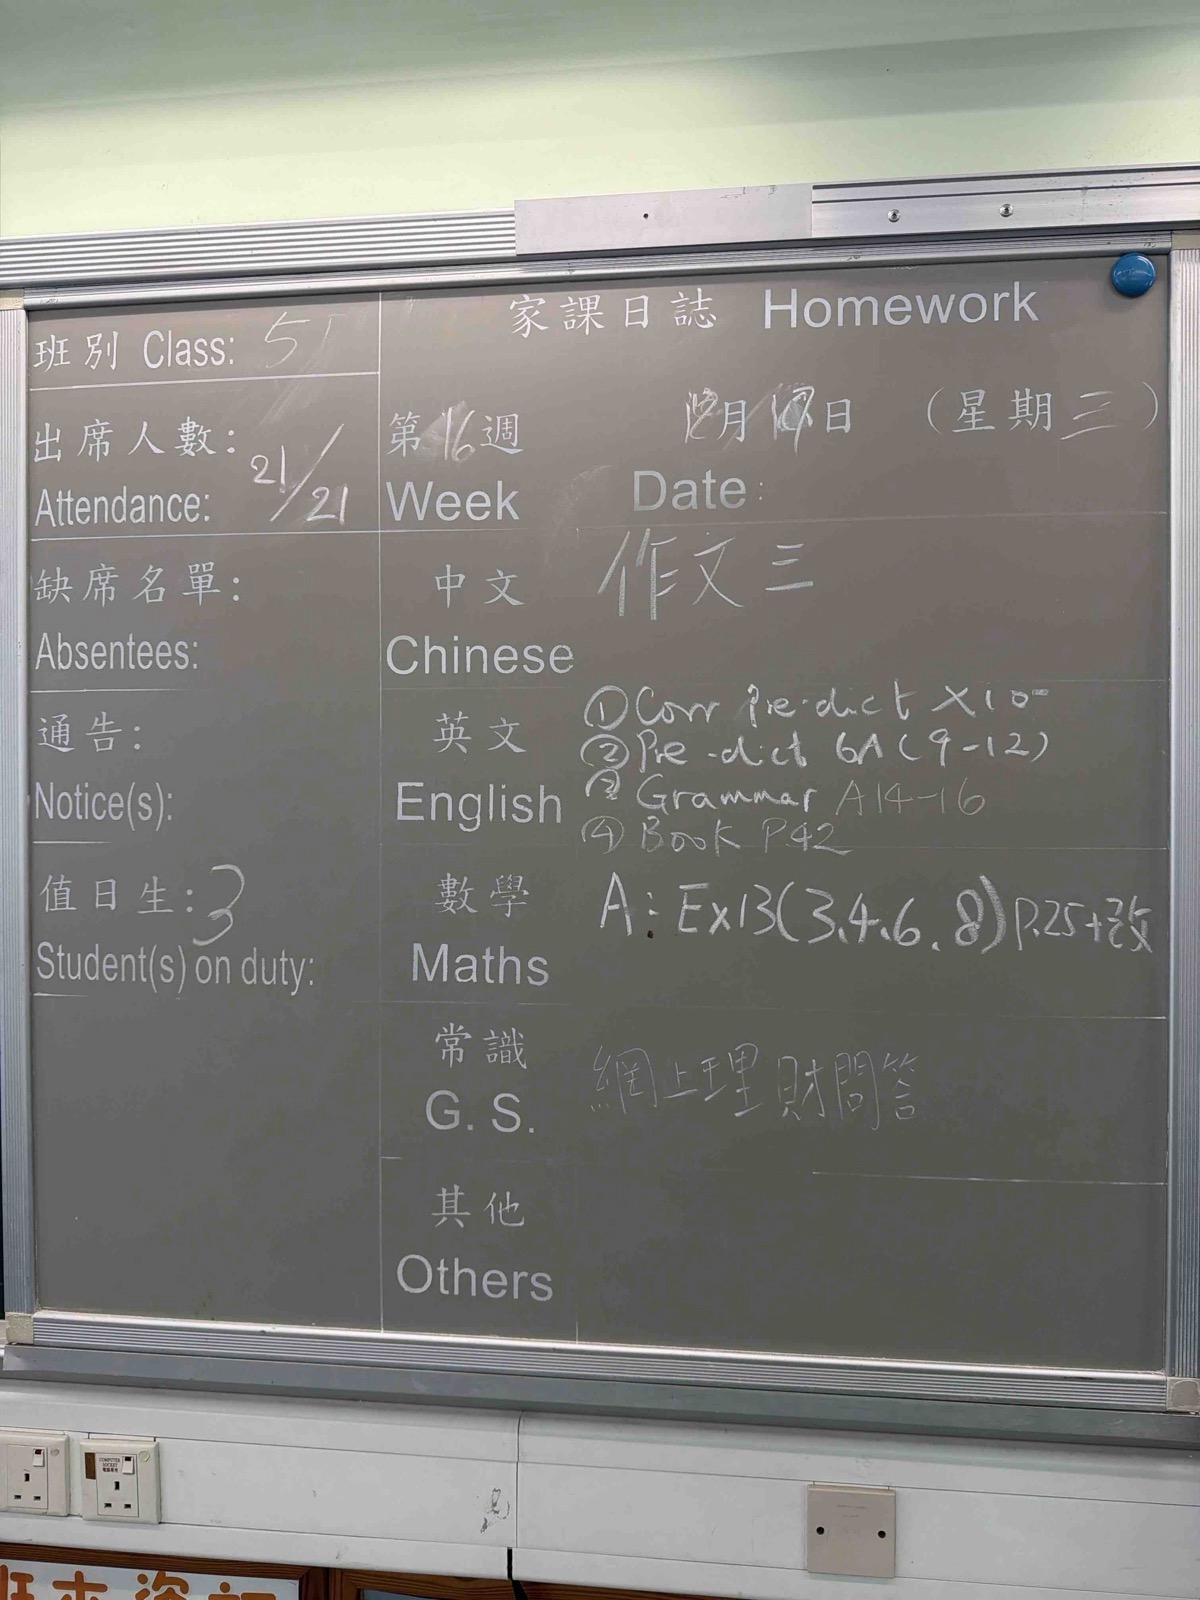 家課日誌 Homework
班別 Class: 5J
出席人數:
Attendance: 21/21
第16週 12月17日 （星期三）
Week Date:
缺席名單:
Absentees:
中文 作文三
Chinese
通告:
Notice(s):
英文
English
① Corr Pre-dict X10
② Pre-dict 6A (9-12)
③ Grammar A14-16
④ Book P.42
值日生: 3
Student(s) on duty:
數學 A: Ex13(3.4.6.8) P.25+改
Maths
常識 網上理財問答
G. S.
其他
Others
COMPUTER
SOCKET